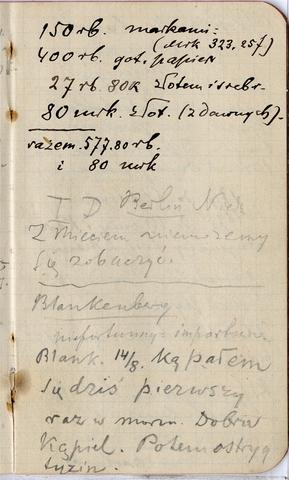 150 rb. markami:
(mrk 323,25f)
400 rb. got. papier
27 rb. 80k złotem i srebr.
80 mrk. złot. (z dawnych).
razem. 577.80 rb.
i 80 mrk
I D Berlin
Z Mieciem niemożemy
się zobaczyć.
Blankenberg
Blank. 14/8. Kąpałem
się dziś pierwszy
raz w morzu. Dobra
Kąpiel. Potem ostryg
tuzin.